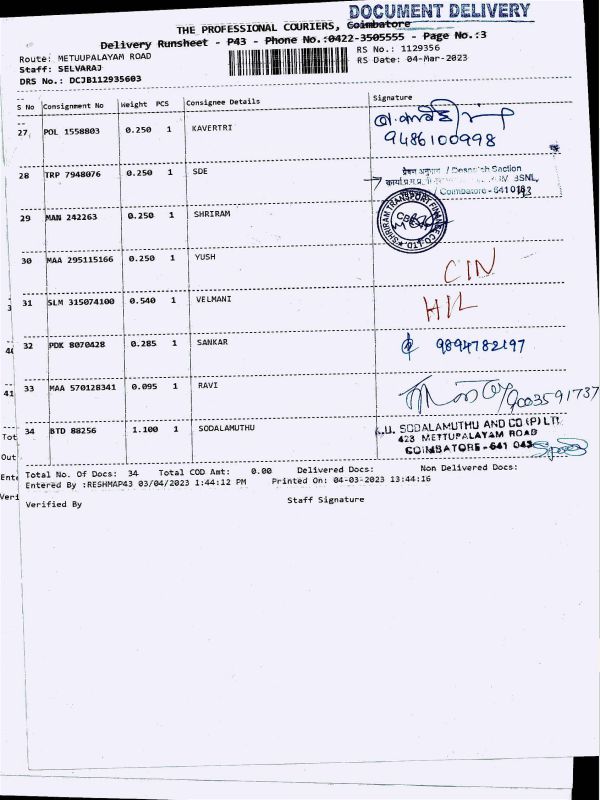 DOCUMENT DELIVERY
THE PROFESSIONAL COURIERS, Coimbatore
Delivery Runsheet - P43 - Phone No.:0422-3505555 - Page No.:3
Route: METUUPALAYAM ROAD
RS No.: 1129356
Staff: SELVARAJ
RS Date: 04-Mar-2023
DRS No.: DCJB112935603
S No Consignment No Weight PCS Consignee Details Signature
27 POL 1558803 0.250 1 KAVERTRI
9486100998
28 TRP 7948076 0.250 1 SDE
प्रेषण अनुभाग / Despatch Section
BSNL,
Coimbatore - 641 043
29 MAN 242263 0.250 1 SHRIRAM
SHRIRAM TRANSPORT FINANCE CO. LTD.
CBE
30 MAA 295115166 0.250 1 YUSH
CIN
31 SLM 315074100 0.540 1 VELMANI
HIL
32 PDK 8070428 0.285 1 SANKAR
9894782197
33 MAA 570128341 0.095 1 RAVI
9003591737
34 BTD 88256 1.100 1 SODALAMUTHU
K.U. SODALAMUTHU AND CO (P) LTD.
423 METTUPALAYAM ROAD
COIMBATORE - 641 043
Total No. Of Docs: 34 Total COD Amt: 0.00 Delivered Docs: Non Delivered Docs:
Entered By :RESHMAP43 03/04/2023 1:44:12 PM Printed On: 04-03-2023 13:44:16
Verified By
Staff Signature